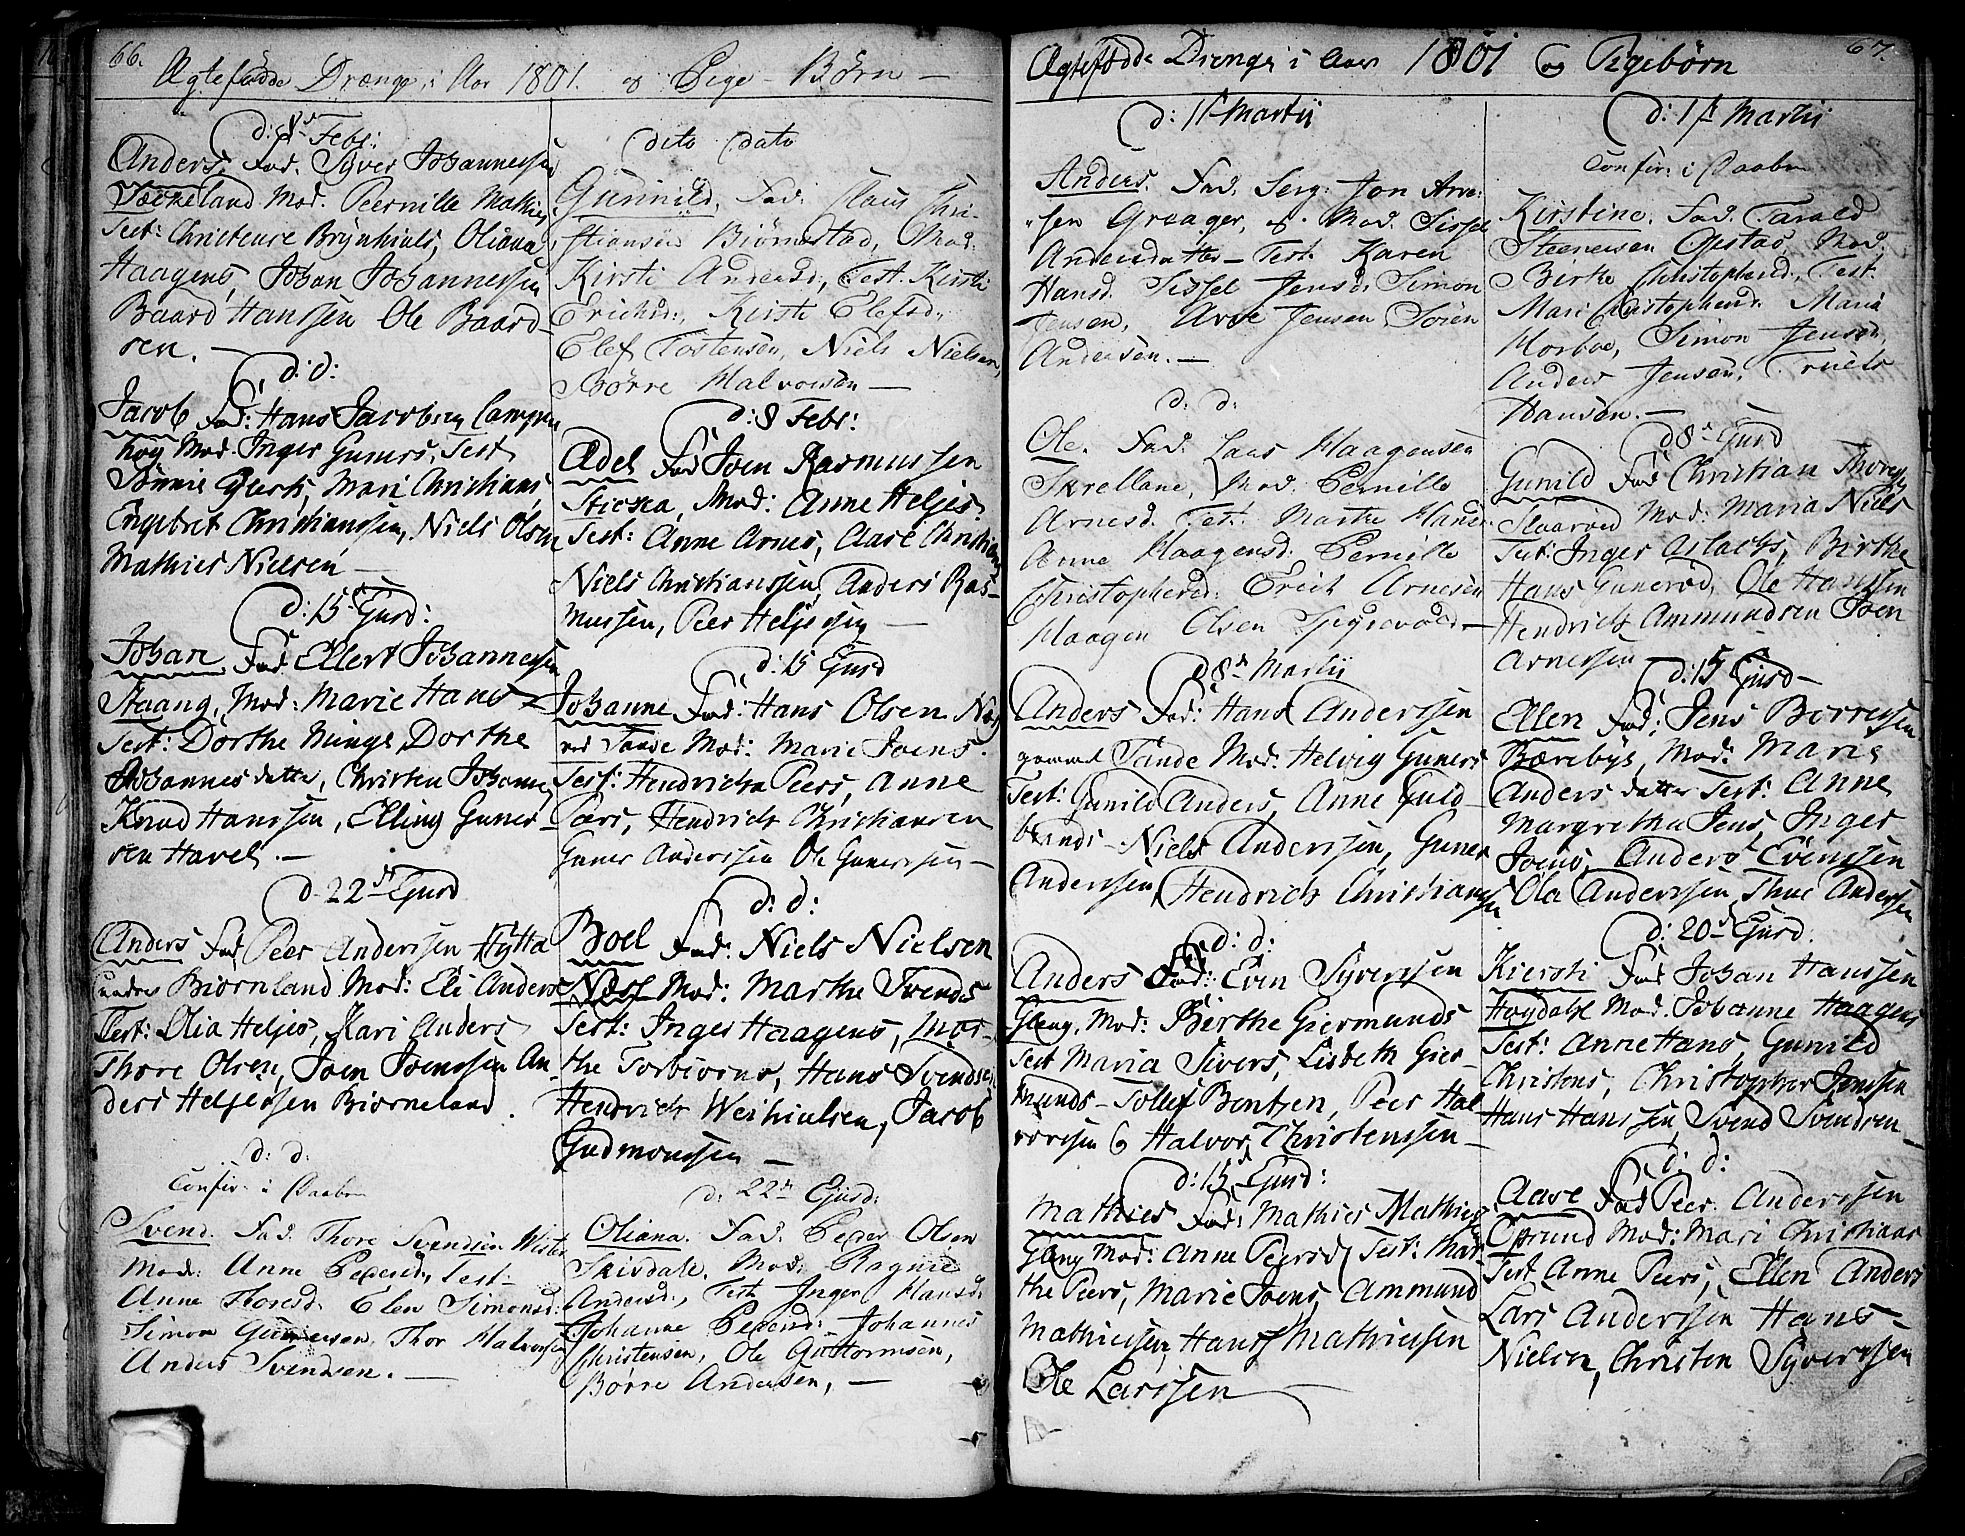 66.
Agtefødde Drænge, i Aar 1801. og Pige-Børn —
d: 8de Febr:
Anders. Fad. Syver Johannessen
Mod. Peernille Mathies
Test: Oliana
Haagens, Johan Johannessen
Baard Hanssen Ole Baard-
sen. —
d: d:
Jacob Fad: Hans Jacobsen
Mod. Inger Guners. Test
Mari Christians
Engebret Christianssen, Niels Olsen
Mathies Nielsen —
d: 15de Ejusd:
Johan. Fad: Ellert Johannessen
Staang, Mod: Marie Hans
Test: Dorthe Minge Dorthe
Johannes datter, Christen Johannes
Knud Hanssen, Elling Guner-
sen Havel. —
d. 22de Ejusd
Anders Fad Peer Anderssen Hytta
under Biørnland Mod: Eli Anders
Test: Olia Heljes, Kari Anders
Thore Olsen, Joen Joenssen An-
ders Heljessen Biørneland.
d: d:
Confir: i Daaben
Svend. Fad. Thore Svendsen
Mod: Anne Pedersd, Test-
Anne Thoresd. Elen Simonsd:
Simon Gunersen, Thor Halvorsen
Anders Svendsen. —
dito dato
Gunnild, Fad. Claus Chri-
stiansen Biørnestad, Mod.
Kirsti Andersd:, Test. Kirsti
Erichsd:, Kirsti Elefsd:,
Elef Tostensen, Niels Nielsen,
Børre Halvorsen —
d: 8 Febr:
Adel Fad Joen Rasmussen
Mod: Anne Heljes
Test: Anne Arnes, Aase Christians
Niels Christianssen, Anders Ras-
mussen, Peer Heljessen —
d: 15 Ejusd
Johanne Fad: Hans Olsen
Mod: Marie Joens.
Test: Hendricka Peers, Anne
Lars, Hendrich Christiansen
Guner Anderssen Ole Gunerssen —
d: d:
Boel Fad: Niels Nielsen
Næss Mod: Marthe Svends
Test: Inger Haagens, Mar-
the Torbiørns, Hans Svendsen
Hendrich Jacob
Gudmonssen —
d: 22de Ejusd:
Oliana. Fad. Peder Olsen
Skisdale. Mod. Ragnil
Andersd:, Test Inger Hansd:
Johanne Pedersd: Johannes
Christensen, Ole Guttormsen,
Børre Andersen, —
67.
Agtefødde Drenge i Aar 1801 og Pigebørn
d: 1ste Martii
Anders. Fad. Serg: Jon Arve-
sen Graager, og Mod. Sissel
Andersdatter — Test. Karen
Hansd. Sissel Jensd: Simon
Jensen, Arve Jensen, Søren
Andersen. —
d: d:
Ole. Fad. Lars Haagensen
Skrellane, Mod. Pernille
Arnesd. Test. Marthe Hansd
Anne Haagensd. Pernille
Christophersd: Erich Arnesen
Haagen Olsen —
d 8de Martii
Anders Fad: Hans Anderssen
gammel Tande Mod: Helvig Guners
Test: Gunild Anders, Anne Guld-
brands — Niels Anderssen, Guner
Anderssen, Hendrich Christianssen
d: d:
Anders Fad: Even Syverssen
Glæng, Mod: Birthe Giermunds
Test Maria Sivers, Lisbeth Gier-
munds — Tollef Bentzen, Peer Hal
vorssen & Halvor Christenssen —
d: 15de Ejusd:
Mathies Fad: Mathies Mathies
Glæng Mod: Anne Peersd Test: Mar-
the Peers, Marie Joens, Ammund
Mathiessen, Hans Mathiessen
Ole Larssen —
d: 1ste Martii
Confir: i Daaben
Kirstine. Fad. Tarald
Steenersen Opstad, Mod.
Birthe Christophersd, Test.
Mari Christophersd: Maria
Simon Jensen,
Anders Jensen, Truels
Hansen. —
d 8de Ejusd
Gunild Fad Christian
Mod: Maria Niels
Test: Inger Aslachs, Birthe
Hans Gunerød, Ole Hanssen
Hendrich Ammundsen Joen
Arnessen —
d: 15 Ejusd —
Ellen Fad: Jens Borressen
Bærebye, Mod: Maria
Anders datter Test: Anne
Margretha Jens, Inger
Joens, Anders Evenssen
Ola Anderssen, Thue Anderssen
d: 20de Ejusd.
Kiersti Fad Johan Hanssen
Høydahl Mod. Johanne Haagens
Test: Anne Hans, Gunild
Christens, Christopher Jenssen
Hans Hanssen, Svend Svendsen —
d: d:
Aase Fad Peer Anderssen
Oprund Mod: Mari Christians
Test Anne Peers, Ellen Anders
Lars Anderssen Hans
Nielsen, Christen Syverssen